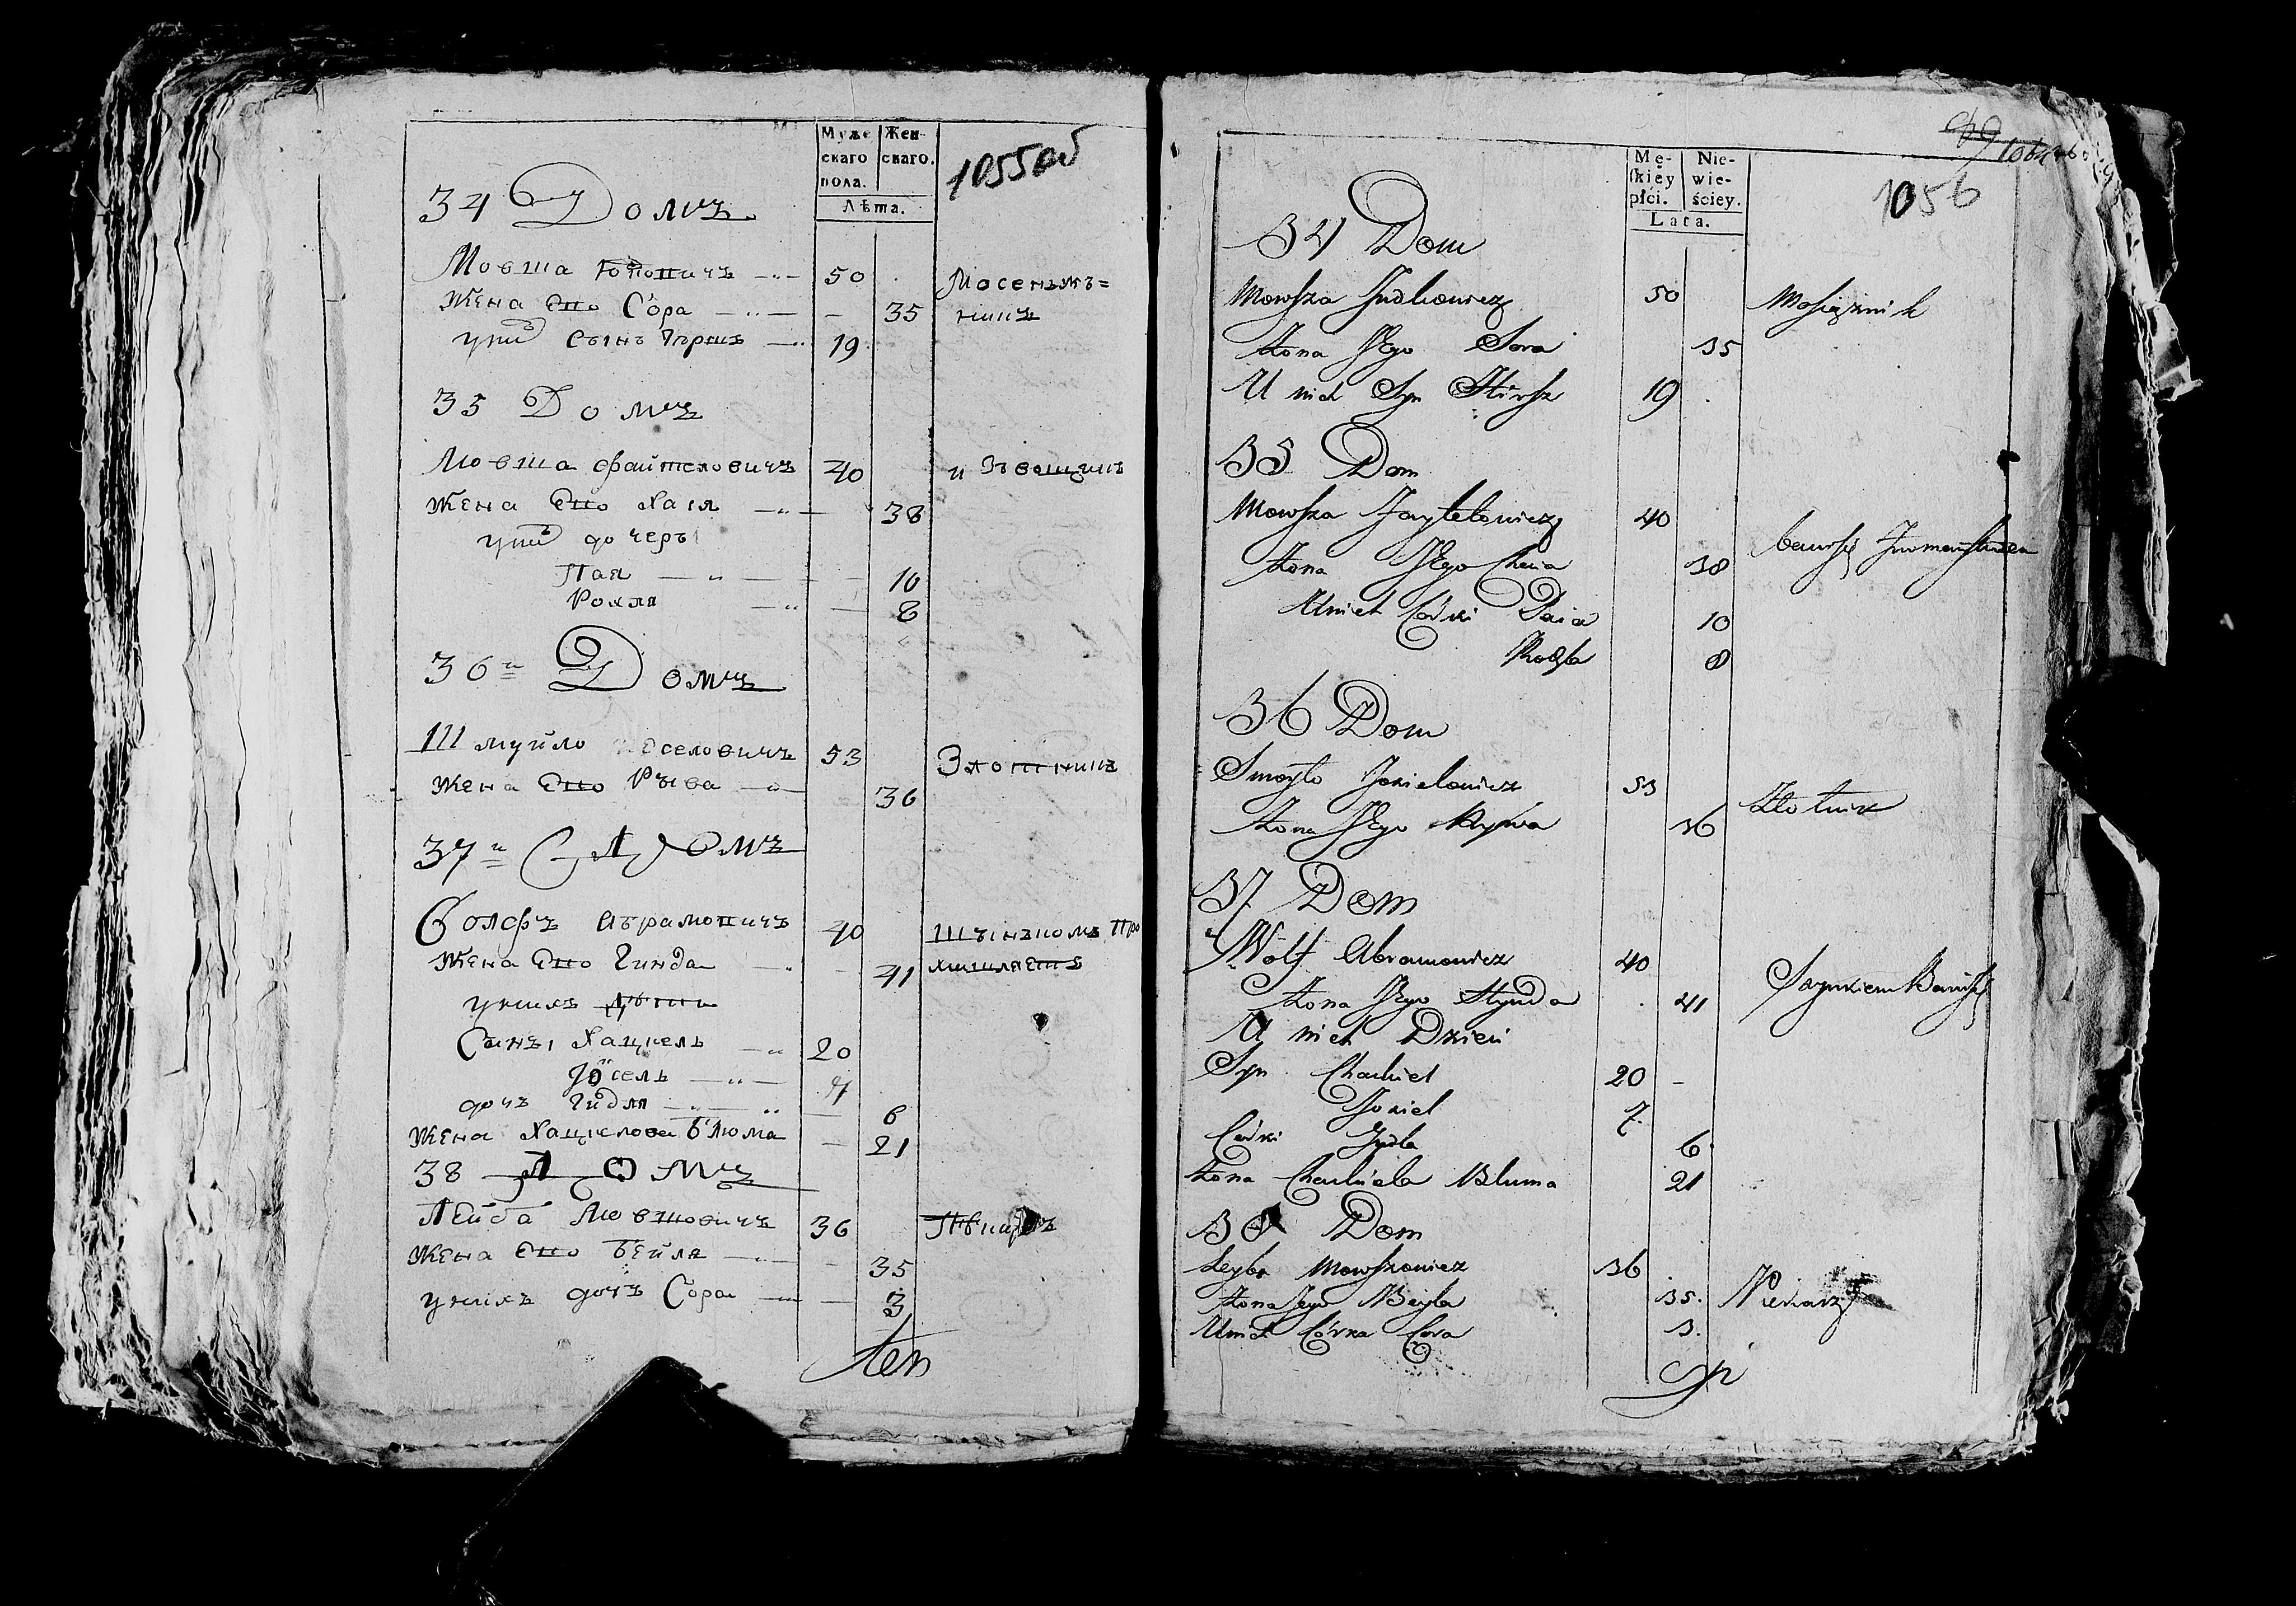 Муже
скаго
пола.
Жен-
скаго.
Лѣта.
1055об
34 Домъ
Мовша Юдковичъ 50 Мосенжъ=
Жена Его Сора 35 никъ
унихъ Сынъ Гиршъ 19
35 Домъ
Мовша Файтеловичъ 40 
Жена Его Хая 38
унихъ дочеры
Пая 10
Рохля 8
36й Домъ
Шмуйло Иоселовичъ 53 Злотникъ
Жена Его Рыва 36
37й Домъ
Волфъ Абрамовичъ 40 Шынкомъ Про
Жена Его Гинда 41 мышляетъ
унихъ Дѣти
Сыны Хацкель 20
Іосель 7
дочь Гидля 6
Жена Хацкелова Блюма 21
38 Домъ
Лейба Мовшовичъ 36 Пѣкаръ
Жена Его Бейля 35
унихъ дочъ Сора 3
Mę-
ſkiey
płci.
Nie-
wie-
ściey.
Lata.
1056
34 Dom
Mowsza Judkowicz 50 Mosiążnik
Żona JEgo Sora 35
U nich Syn Hirsz 19
35 Dom
Mowsza Faytelowicz 40
Żona JEgo Chaia 38
U nich Córki Paia 10
Rochla 8
36 Dom
Smoyło Joselowicz 53 Złotnik
Żona JEgo Rywa 36
37 Dom
Wolf Abramowicz 40 Szynkiem Bawi się
Żona JEgo Hynda 41
U nich Dzieci
Syn Chackiel 20
Josiel 7
Córki Hydla 6
Żona Chackiela Bluma 21
38 Dom
Leyba Mowszowicz 36
Żona Jego Beyla 35. Piekarz
U nich Córka Cora 3.